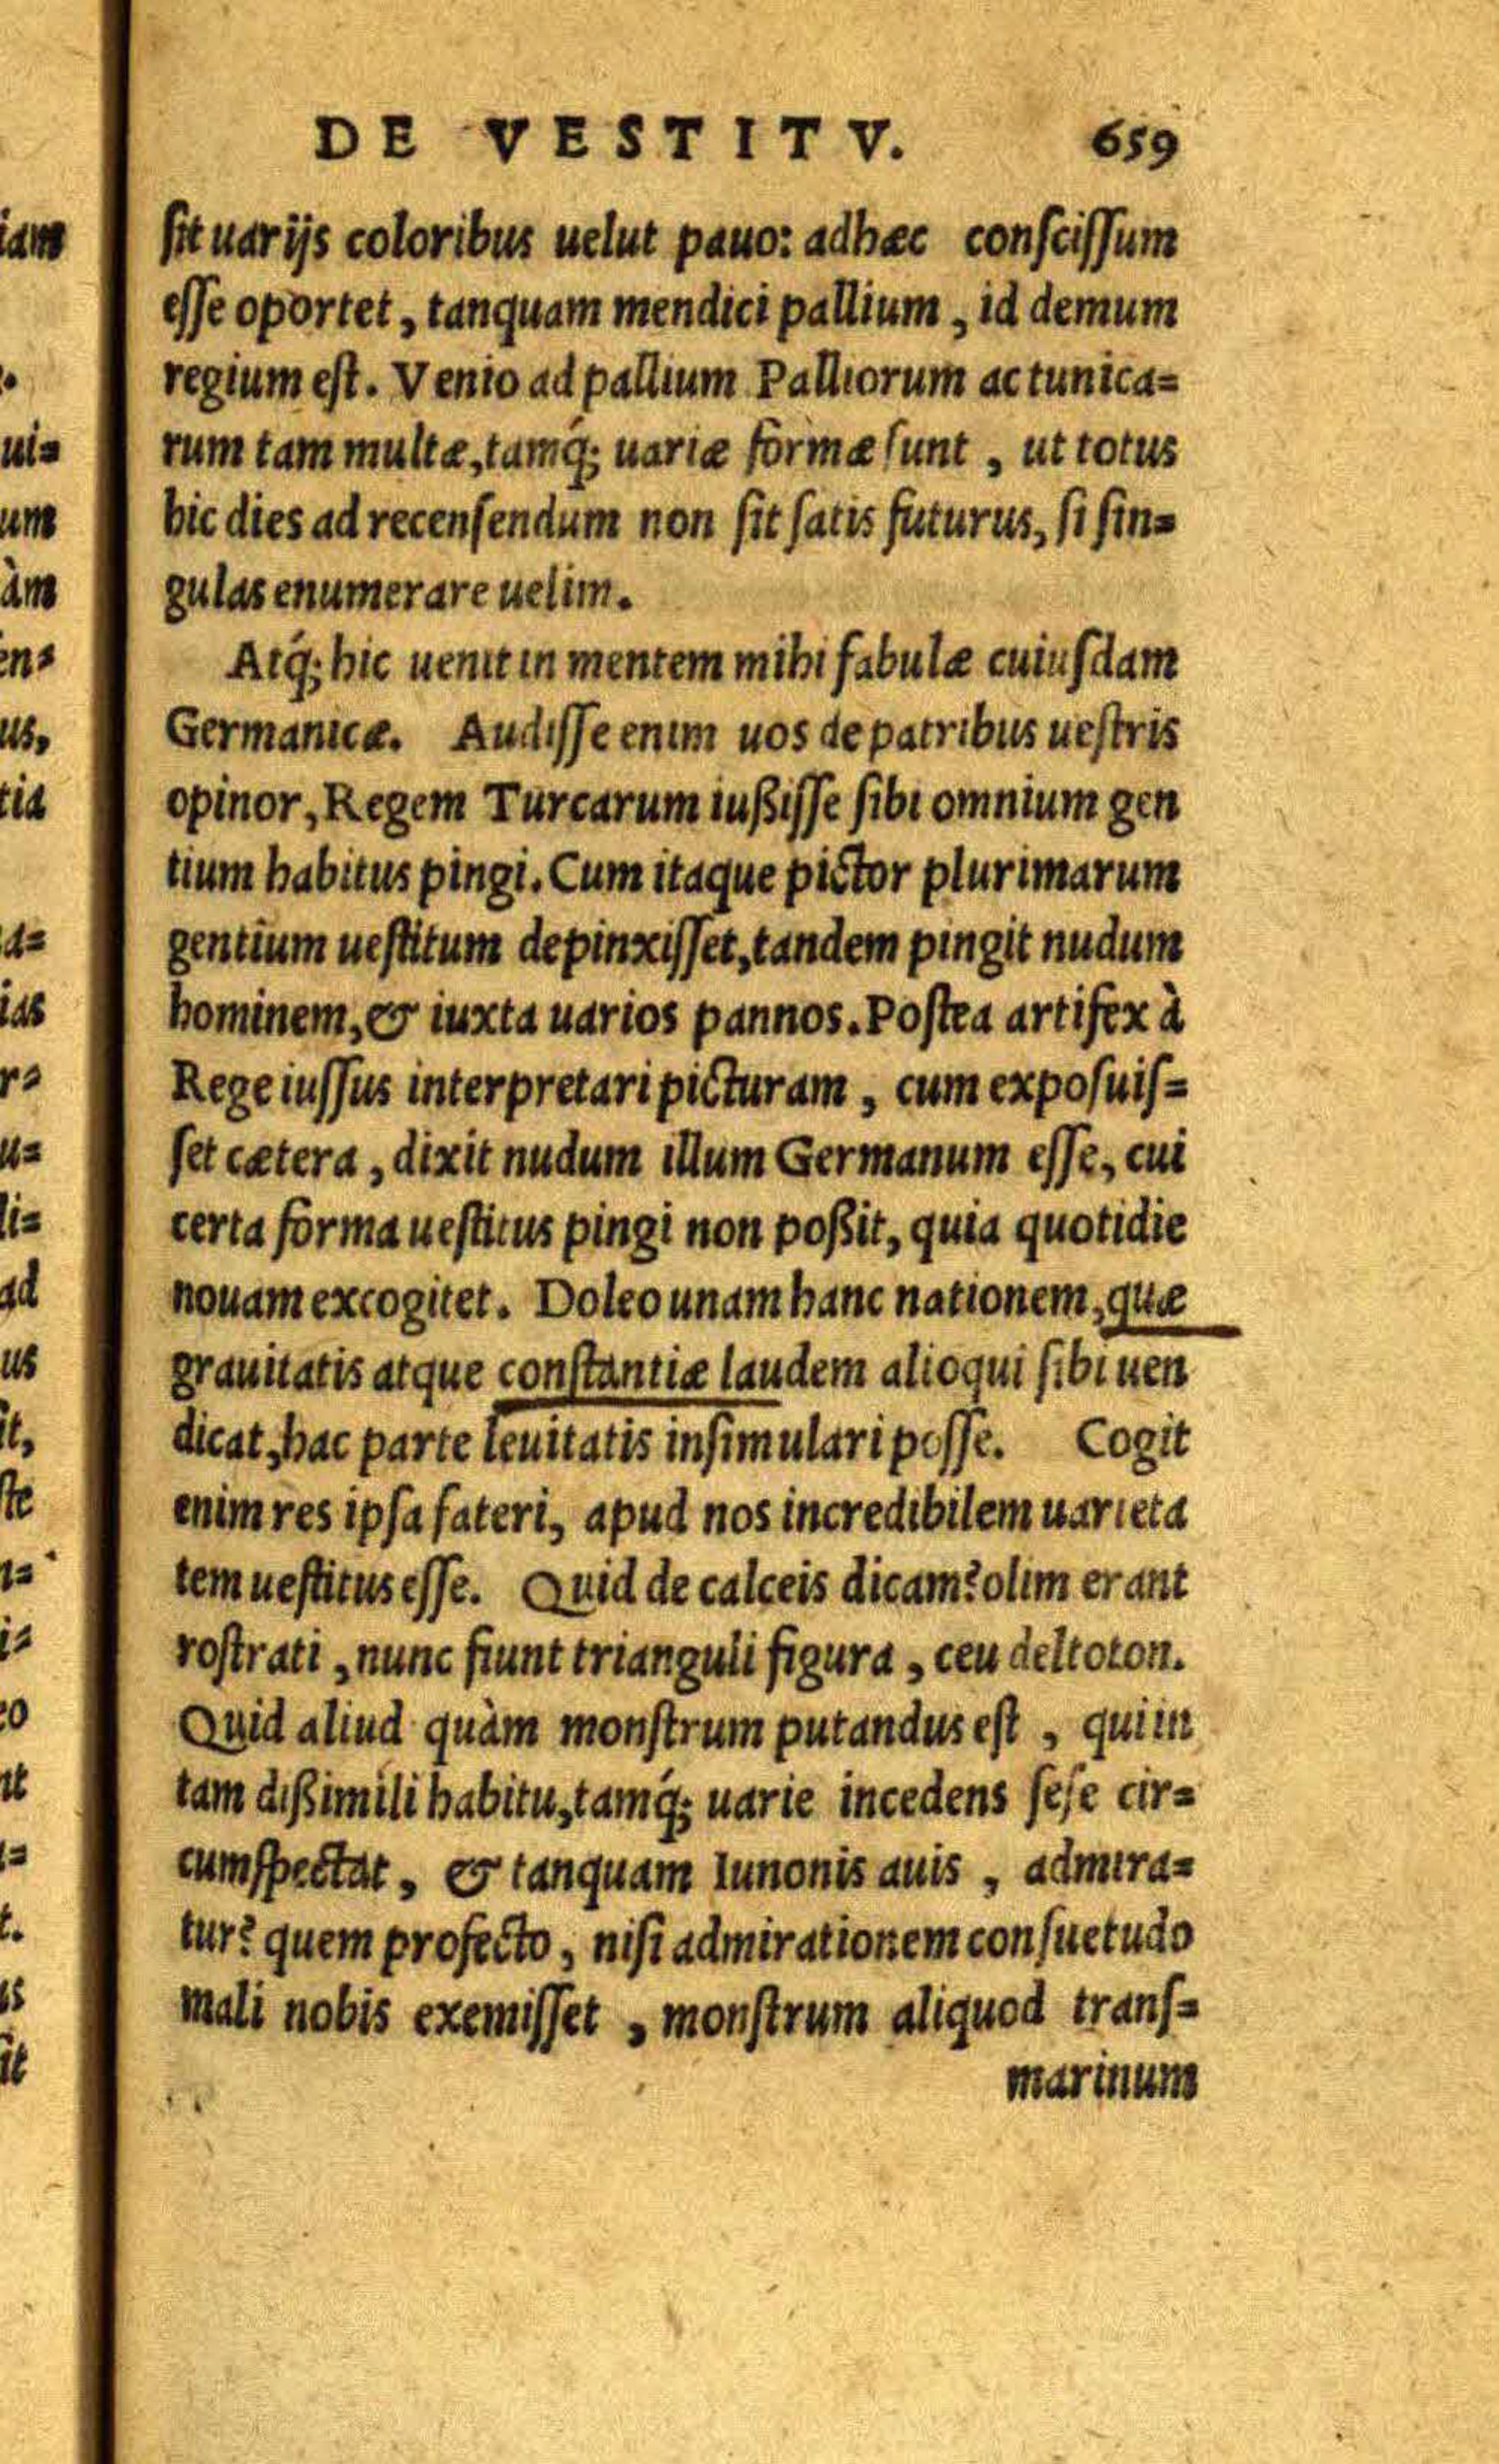 DE VESTITV. 659
ſit uarijs coloribus uelut pauo: adhæc conſciſſum
eſſe oportet, tanquam mendici pallium, id demum
regium eſt. Venio ad pallium Palliorum ac tunica=
rum tam multæ, tamq́; uariæ formæ ſunt, ut totus
hic dies ad recenſendum non ſit ſatis futurus, ſi ſin=
gulas enumerare uelim.
Atq́; hic uenit in mentem mihi fabulæ cuiuſdam
Germanicæ. Audiſſe enim uos de patribus ueſtris
opinor, Regem Turcarum iußiſſe ſibi omnium gen
tium habitus pingi. Cum itaque pictor plurimarum
gentium ueſtitum depinxiſſet, tandem pingit nudum
hominem, & iuxta uarios pannos. Poſtea artifex à
Rege iuſſus interpretari picturam, cum expoſuiſ=
ſet cætera, dixit nudum illum Germanum eſſe, cui
certa forma ueſtitus pingi non poßit, quia quotidie
nouam excogitet. Doleo unam hanc nationem, quæ
grauitatis atque conſtantiæ laudem alioqui ſibi uen
dicat, hac parte leuitatis inſimulari poſſe. Cogit
enim res ipſa fateri, apud nos incredibilem uarieta
tem ueſtitus eſſe. Quid de calceis dicam? olim erant
roſtrati, nunc fiunt trianguli figura, ceu deltoton.
Quid aliud quàm monſtrum putandus eſt, qui in
tam dißimili habitu, tamq́; uarie incedens ſeſe cir=
cumſpectat, & tanquam Iunonis auis, admira=
tur? quem profecto, niſi admirationem conſuetudo
mali nobis exemiſſet, monſtrum aliquod tranſ=
marinum